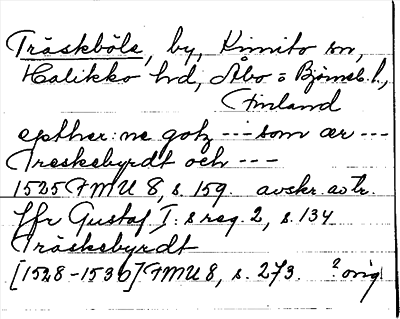 Träskböle, by, Kimito sn,
Halikko hd, Åbo o Björneb. l.,
Finland
epther:ne gotz --- som ær ---
Treskebyrdt och ---
1525 FMU 8, s. 159. avskr. av tr.
Jfr Gustaf I:s reg. 2, s. 134
Träskebyrdt
[1528-1536] FMU 8, s. 273. ? orig